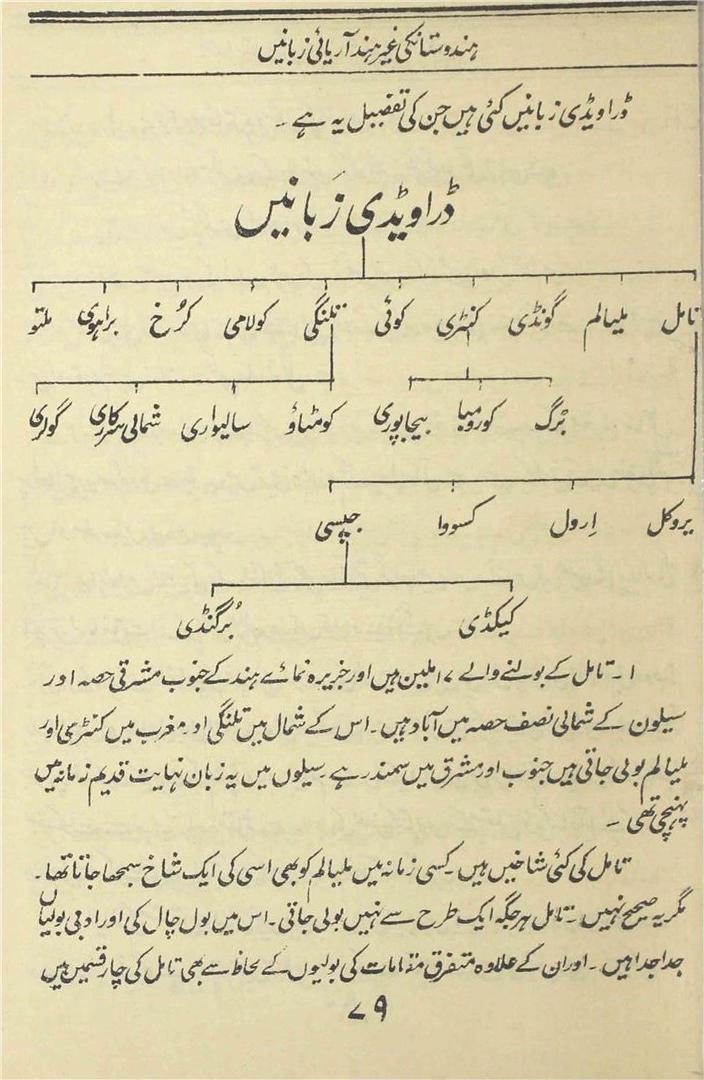 ہندوستانکی غیر ہند آریائی زبانیں
ڈراویڈی زبانیں کئی ہیں جن کی تفصیل یہ ہے ۔
ڈراویڈی زَبانیں
تامل ملیالم گونڈی کنٹری کوئی تلنگی کولامی کرُخ براہوی ملتو
بُرگ کورومبا بیجاپوری کومٹاؤ سالیواری شمالی سرکاری گولری
یروکل اِرول کسووا جپسی
کیکڈی بُرگنڈی
۱ ۔ تامل کے بولنے والے ۱۷ ملین ہیں اور جزیرہ نمائے ہند کے جنوب مشرقی حصہ اور
سیلون کے شمالی نصف حصہ میں آباد ہیں ۔ اس کے شمال میں تلنگی اور مغرب میں کنٹری اور
ملیالم بولی جاتی ہیں جنوب اور مشرق میں سمندر ہے ۔ سیلوں میں یہ زبان نہایت قدیم زمانہ میں
پہنچی تھی ۔
تامل کی کئی شاخیں ہیں ۔ کسی زمانہ میں ملیالم کو بھی اسی کی ایک شاخ سمجھا جاتا تھا ۔
مگر یہ صحیح نہیں ۔ تامل ہر جگہ ایک طرح سے نہیں بولی جاتی ۔ اس میں بول چال کی اور ادبی بولیاں
جدا جدا ہیں ۔ اور ان کے علاوہ متفرق مقامات کی بولیوں کے لحاظ سے بھی تامل کی چار قسمیں ہیں
۷۹